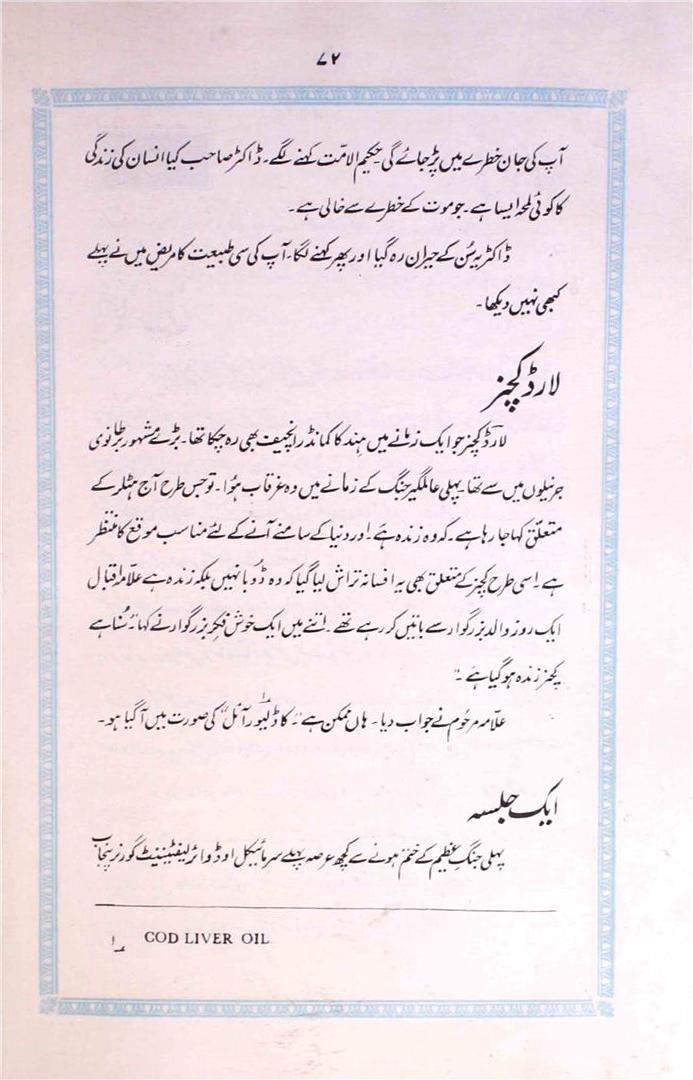 ۷۲
آپ کی جان خطرے میں پڑ جائے گی حکیم الامت کہنے لگے۔ ڈاکٹر صاحب کیا انسان کی زندگی
کا کوئی لمحہ ایسا ہے۔ جو موت کے خطرے سے خالی ہے۔
ڈاکٹر یہ سُن کے حیران رہ گیا اور پھر کہنے لگا۔ آپ کی سی طبیعت کا مریض میں نے پہلے
کبھی نہیں دیکھا۔
لارڈ کچنر
لارڈ کچنر جو ایک زمانے میں ہند کا کمانڈر انچیف بھی رہ چکا تھا۔ بڑے مشہور برطانوی
جرنیلوں میں سے تھا۔ پہلی عالمگیر جنگ کے زمانے میں وہ غرقاب ہؤا۔ تو جس طرح آج ہٹلر کے
متعلق کہا جا رہا ہے۔ کہ وہ زندہ ہے اور دنیا کے سامنے آنے کے لئے مناسب موقع کا منتظر
ہے۔ اسی طرح کچنر کے متعلق بھی یہ افسانہ تراش لیا گیا کہ وہ ڈوبا نہیں بلکہ زندہ ہے علامہ اقبال
ایک روز والد بزرگوار سے باتیں کر رہے تھے۔ اتنے میں ایک خوش فکر بزرگوار نے کہا "سُنا ہے
کچنر زندہ ہو گیا ہے۔"
علامہ مرحوم نے جواب دیا۔ ہاں ممکن ہے "کاڈ لیور آئل" ۱ کی صورت میں آگیا ہو۔
ایک جلسہ
پہلی جنگِ عظیم کے ختم ہونے سے کچھ عرصہ پہلے سر مائیکل اوڈوائر لیفٹیننٹ گورنر پنجاب
۱ COD LIVER OIL